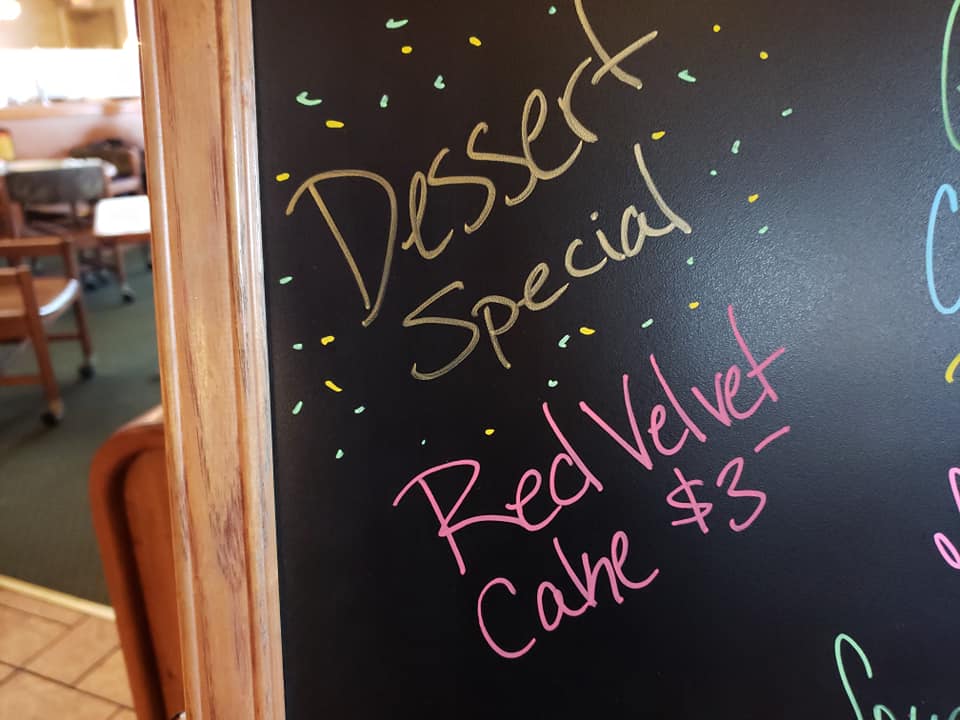 Dessert
Special
Red Velvet
Cake $3-